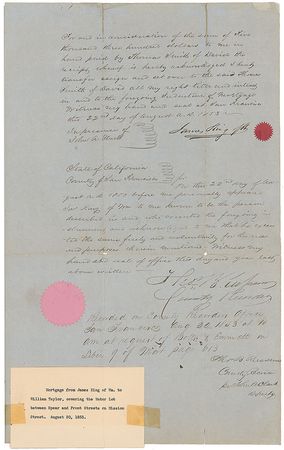 For and in consideration of the sum of Five
thousand three hundred dollars to me in
hand paid by Thomas Smith of Davis the
receipt whereof is hereby acknowledged I hereby
transfer assign and set over to the said Thomas
Smith of Davis all my right title and interest
in and to the foregoing Indenture of Mortgage
Witness my hand and seal at San Francisco
this 22nd day of August A.D. 1853
In presence of
James King of Wm
State of California
County of San Francisco
On this 22nd day of Au
gust A.D. 1853 before me personally appeared
James King of Wm to me known to be the person
described in and who executed the foregoing in
strument and acknowledged to me that he execu
ted the same freely and voluntarily for the uses
and purposes therein mentioned. Witness my
hand and seal of office this day and year last
above written
County Recorder
Recorded in County Recorders Office
San Francisco Aug 22 1853 at 10
am at request of
Liber 9 of Mort page 213
County Recorder
Deputy
Mortgage from James King of Wm. to
William Taylor, covering the Water Lot
between Spear and Front Streets on Mission
Street. August 20, 1853.